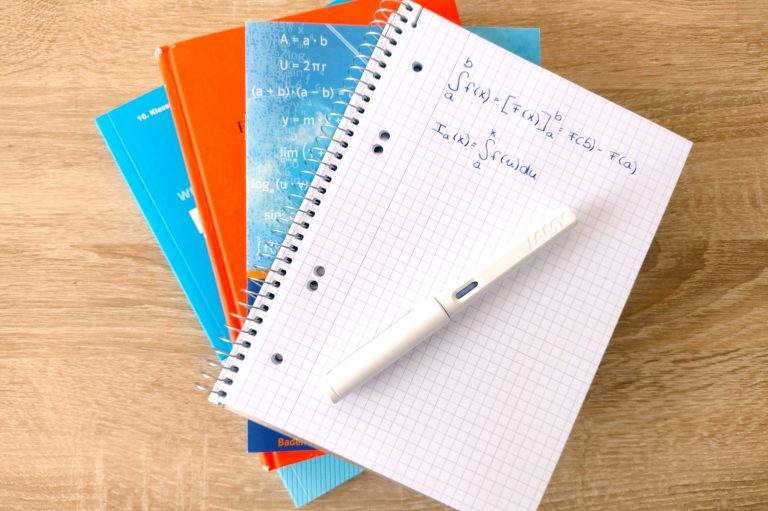 10. Klasse
A = a · b
U = 2πr
(a + b)·(a − b)
y = m · x +
lim (
log
sin
∫f(
Baden
b
∫f(x) = [F(x)]ᵇₐ = F(b) - F(a)
a
x
Iₐ(x) = ∫f(u)du
a
LAMY